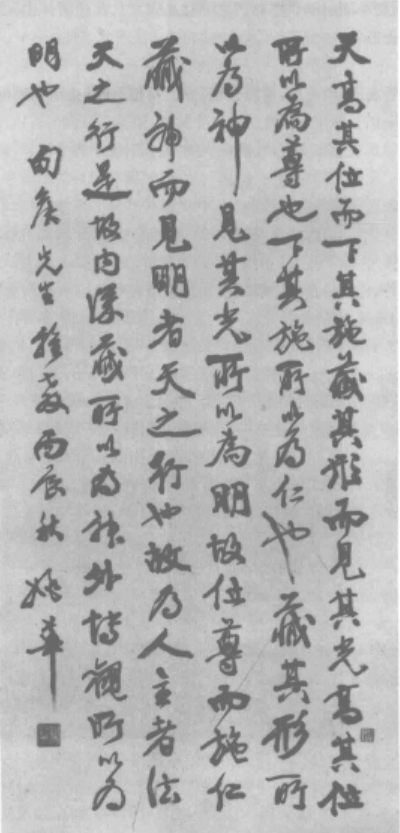 天高其位而下其施藏其形而見其光高其位
所以為尊也下其施所以為仁也藏其形所
以為神見其光所以為明故位尊而施仁
藏神而見明者天之行也故為人主者法
天之行是故内深藏所以為神外博觀所以為
明也 先生教丙辰秋 姚華